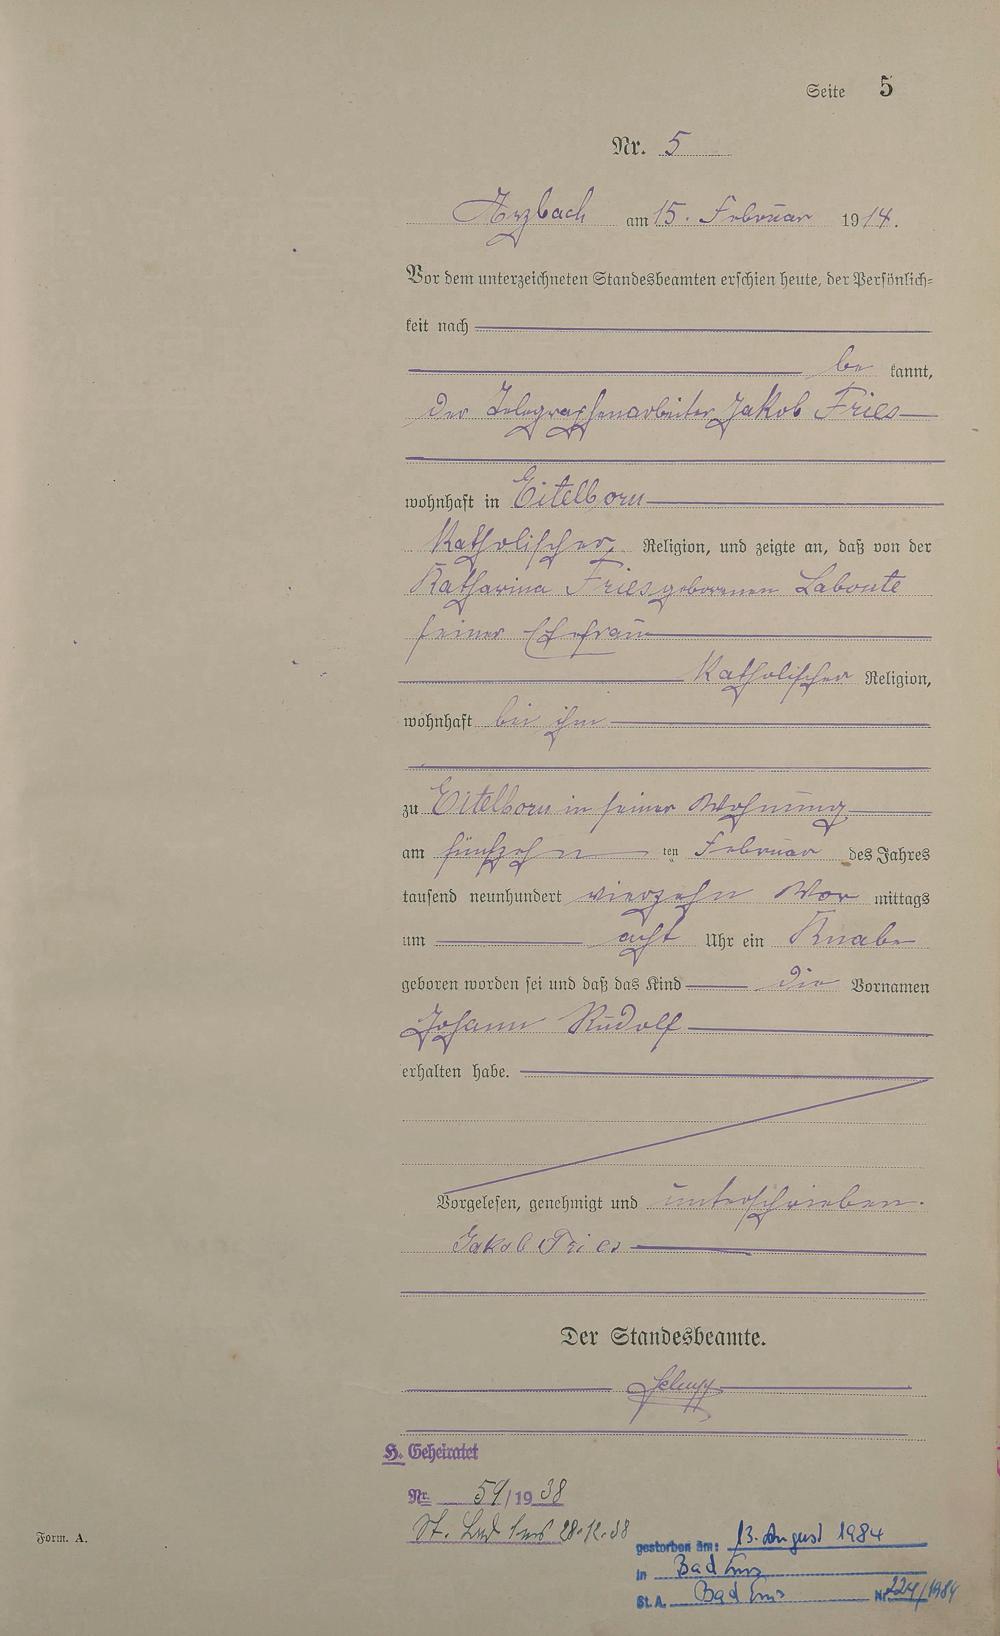 Seite 5
Nr. 5
Arzbach am 15. Februar 1914.
Vor dem unterzeichneten Standesbeamten erschien heute, der Persönlich=
keit nach
be kannt,
der Telegraphenarbeiter Jakob Fries
wohnhaft in Eitelborn
katholischer Religion, und zeigte an, daß von der
Katharina Fries geborenen Labonte
seiner Ehefrau
katholischer Religion,
wohnhaft bei ihm
zu Eitelborn in seiner Wohnung
am fünfzehn ten Februar des Jahres
tausend neunhundert vierzehn Vor mittags
um acht Uhr ein Knabe
geboren worden sei und daß das Kind die Vornamen
Johann Rudolf
erhalten habe.
Vorgelesen, genehmigt und unterschrieben.
Jakob Fries
Der Standesbeamte.
H. Geheiratet
Nr. 59/1938
St. Bad Ems 28.12.38
Form. A.
gestorben am: 13. August 1984
in Bad Ems
St. A. Bad Ems Nr. 224/1984